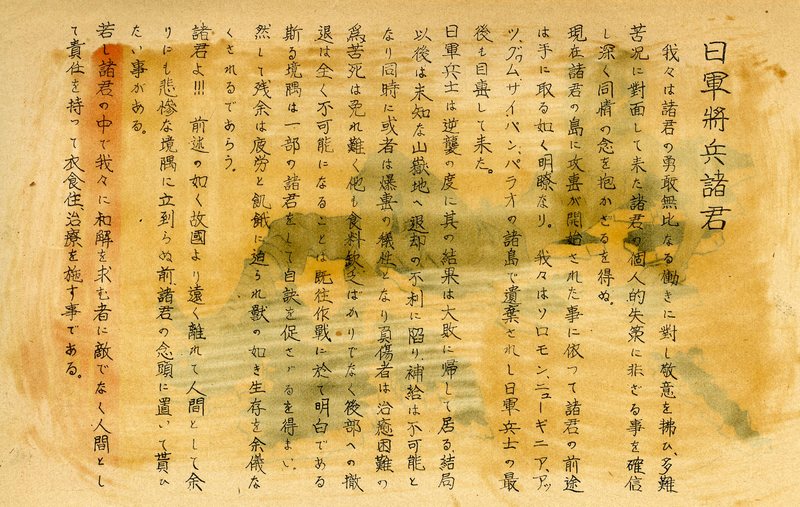 日軍將兵諸君
我々は諸君の勇敢無比なる働きに對し敬意を拂ひ、多難
苦況に對面して来た諸君の個人的失策に非ざる事を確信
し深く同情の念を抱かざるを得ぬ。
現在諸君の島に攻撃が開始された事に依って諸君の前途
は手に取る如く明瞭なり。我々はソロモン、ニューギニア、アッ
ツ、グヮム、サイパン、パラオの諸島で遺棄されし日軍兵士の最
後も目撃して来た。
日軍兵士は逆襲の度に其の結果は大敗に帰して居る結局
以後は未知な山嶽地へ退却の不利に陥り、補給は不可能と
なり同時に或者は爆撃の犠牲となり負傷者は治癒困難の
為苦死は免れ難く他も食料欽乏ばかりでなく後部への撤
退は全く不可能になることは既往作戦に於て明白である
斯る境隅は一部の諸君をして自訣を促さゞるを得まい。
然して残余は疲労と飢餓に迫られ獣の如き生存を余儀な
くされるであらう。
諸君よ!!! 前述の如く故國より遠く離れて人間として余
りにも悲慘な境隅に立到らぬ前、諸君の念頭に置いて貰ひ
たい事がある。
若し諸君の中で我々に和解を求む者に敵でなく人間とし
て責任を持って衣食住、治療を施す事である。